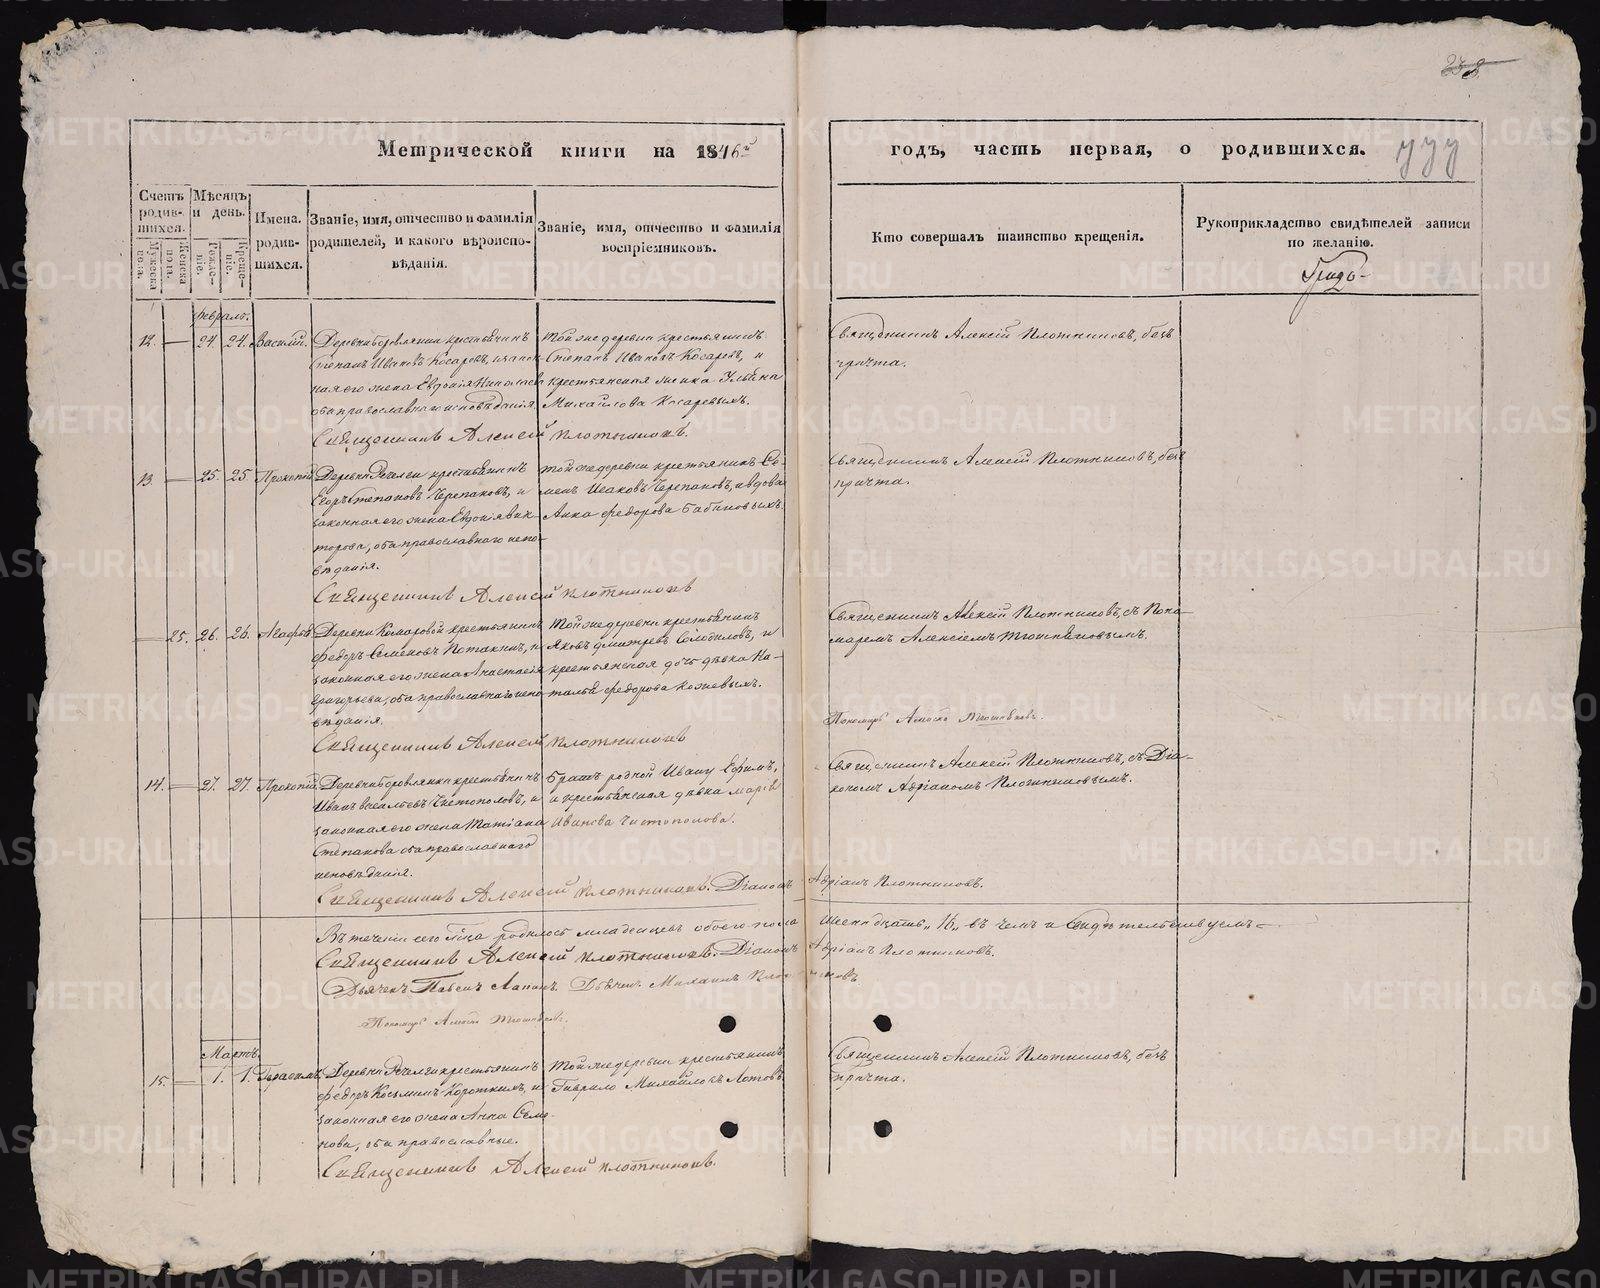 Метрической книги на 1846й
годъ, часть первая, о родившихся.
Счетъ родившихся.
Мужеска пола.
Женска пола.
Мѣсяцъ и день.
Рожденіе.
Крещеніе.
Имена родившихся.
Званіе, имя, отчество и фамилія
родителей, и какого вѣроиспо-
вѣданія.
Званіе, имя, отчество и фамилія
воспріемниковъ.
Кто совершалъ таинство крещенія.
Рукоприкладство свидѣтелей записи
по желанію.
Февраль.
12. — 24. 24. Василій.
Деревни Боровлянки крестьянинъ
Степанъ Ивановъ Косаревъ, и закон-
ная его жена Евдокія Николаева
оба православнаго исповѣданія.
Той же деревни крестьянинъ
Степанъ Ивановъ Косаревъ, и
крестьянская женка Ульяна
Михайлова Косаревыхъ.
Священникъ Алексѣй Плотниковъ, безъ
причта.
Священникъ Алексей Плотниковъ.
13. — 25. 25. Прокопій
крестьянинъ
Егоръ Степановъ Черепановъ, и
законная его жена Евдокія Вик-
торова, оба православнаго испо-
вѣданія.
Той же деревни крестьянинъ Се-
менъ Исаковъ Черепановъ, и вдова
Анна Федорова Бабиновыхъ.
Священникъ Алексѣй Плотниковъ, безъ
причта.
Священникъ Алексей Плотниковъ
— 25. 26. 26. Агафья
Деревни Комаровой крестьянинъ
Федоръ Семеновъ Потакинъ, и
законная его жена Анастасія
Григорьева, оба православнаго испо-
вѣданія.
Той же деревни крестьянинъ
Яковъ Дмитревъ Солодиловъ, и
крестьянская дочь дѣвка На-
талья Федорова Кожевыхъ.
Священникъ Алексѣй Плотниковъ, съ Поно-
маремъ Алексіемъ
Пономарь
Священникъ Алексей Плотниковъ
14. — 27. 27. Прокопій
Деревни Боровлянки крестьянинъ
Иванъ Васильевъ Чистополовъ, и
законная его жена Татіана
Степанова оба православнаго
исповѣданія.
Братъ родной Ивану Ефимъ,
и крестьянская дѣвка Марія
Иванова Чистополова.
Священникъ Алексѣй Плотниковъ, съ Діа-
кономъ Адріаномъ Плотниковымъ.
Священникъ Алексей Плотниковъ. Діаконъ Адріанъ Плотниковъ.
Въ теченіи сего м͠ца родилось младенцевъ обоего пола шеснадцать „16„ въ чемъ и свидѣтельствуемъ
Священникъ Алексей Плотниковъ. Діаконъ Адріанъ Плотниковъ.
Дьячекъ Павелъ Лапинъ. Дьячекъ Михаилъ Плотниковъ
Пономарь
Мартъ.
15. — 1. 1. Герасимъ.
крестьянинъ
Федоръ Косьминъ Короткихъ, и
законная его жена Анна Семе-
нова, оба православные.
Той же деревни крестьянинъ
Гаврило Михайловъ Лотовъ.
Священникъ Алексѣй Плотниковъ, безъ
причта.
Священникъ Алексей Плотниковъ.
METRIKI.GASO-URAL.RU